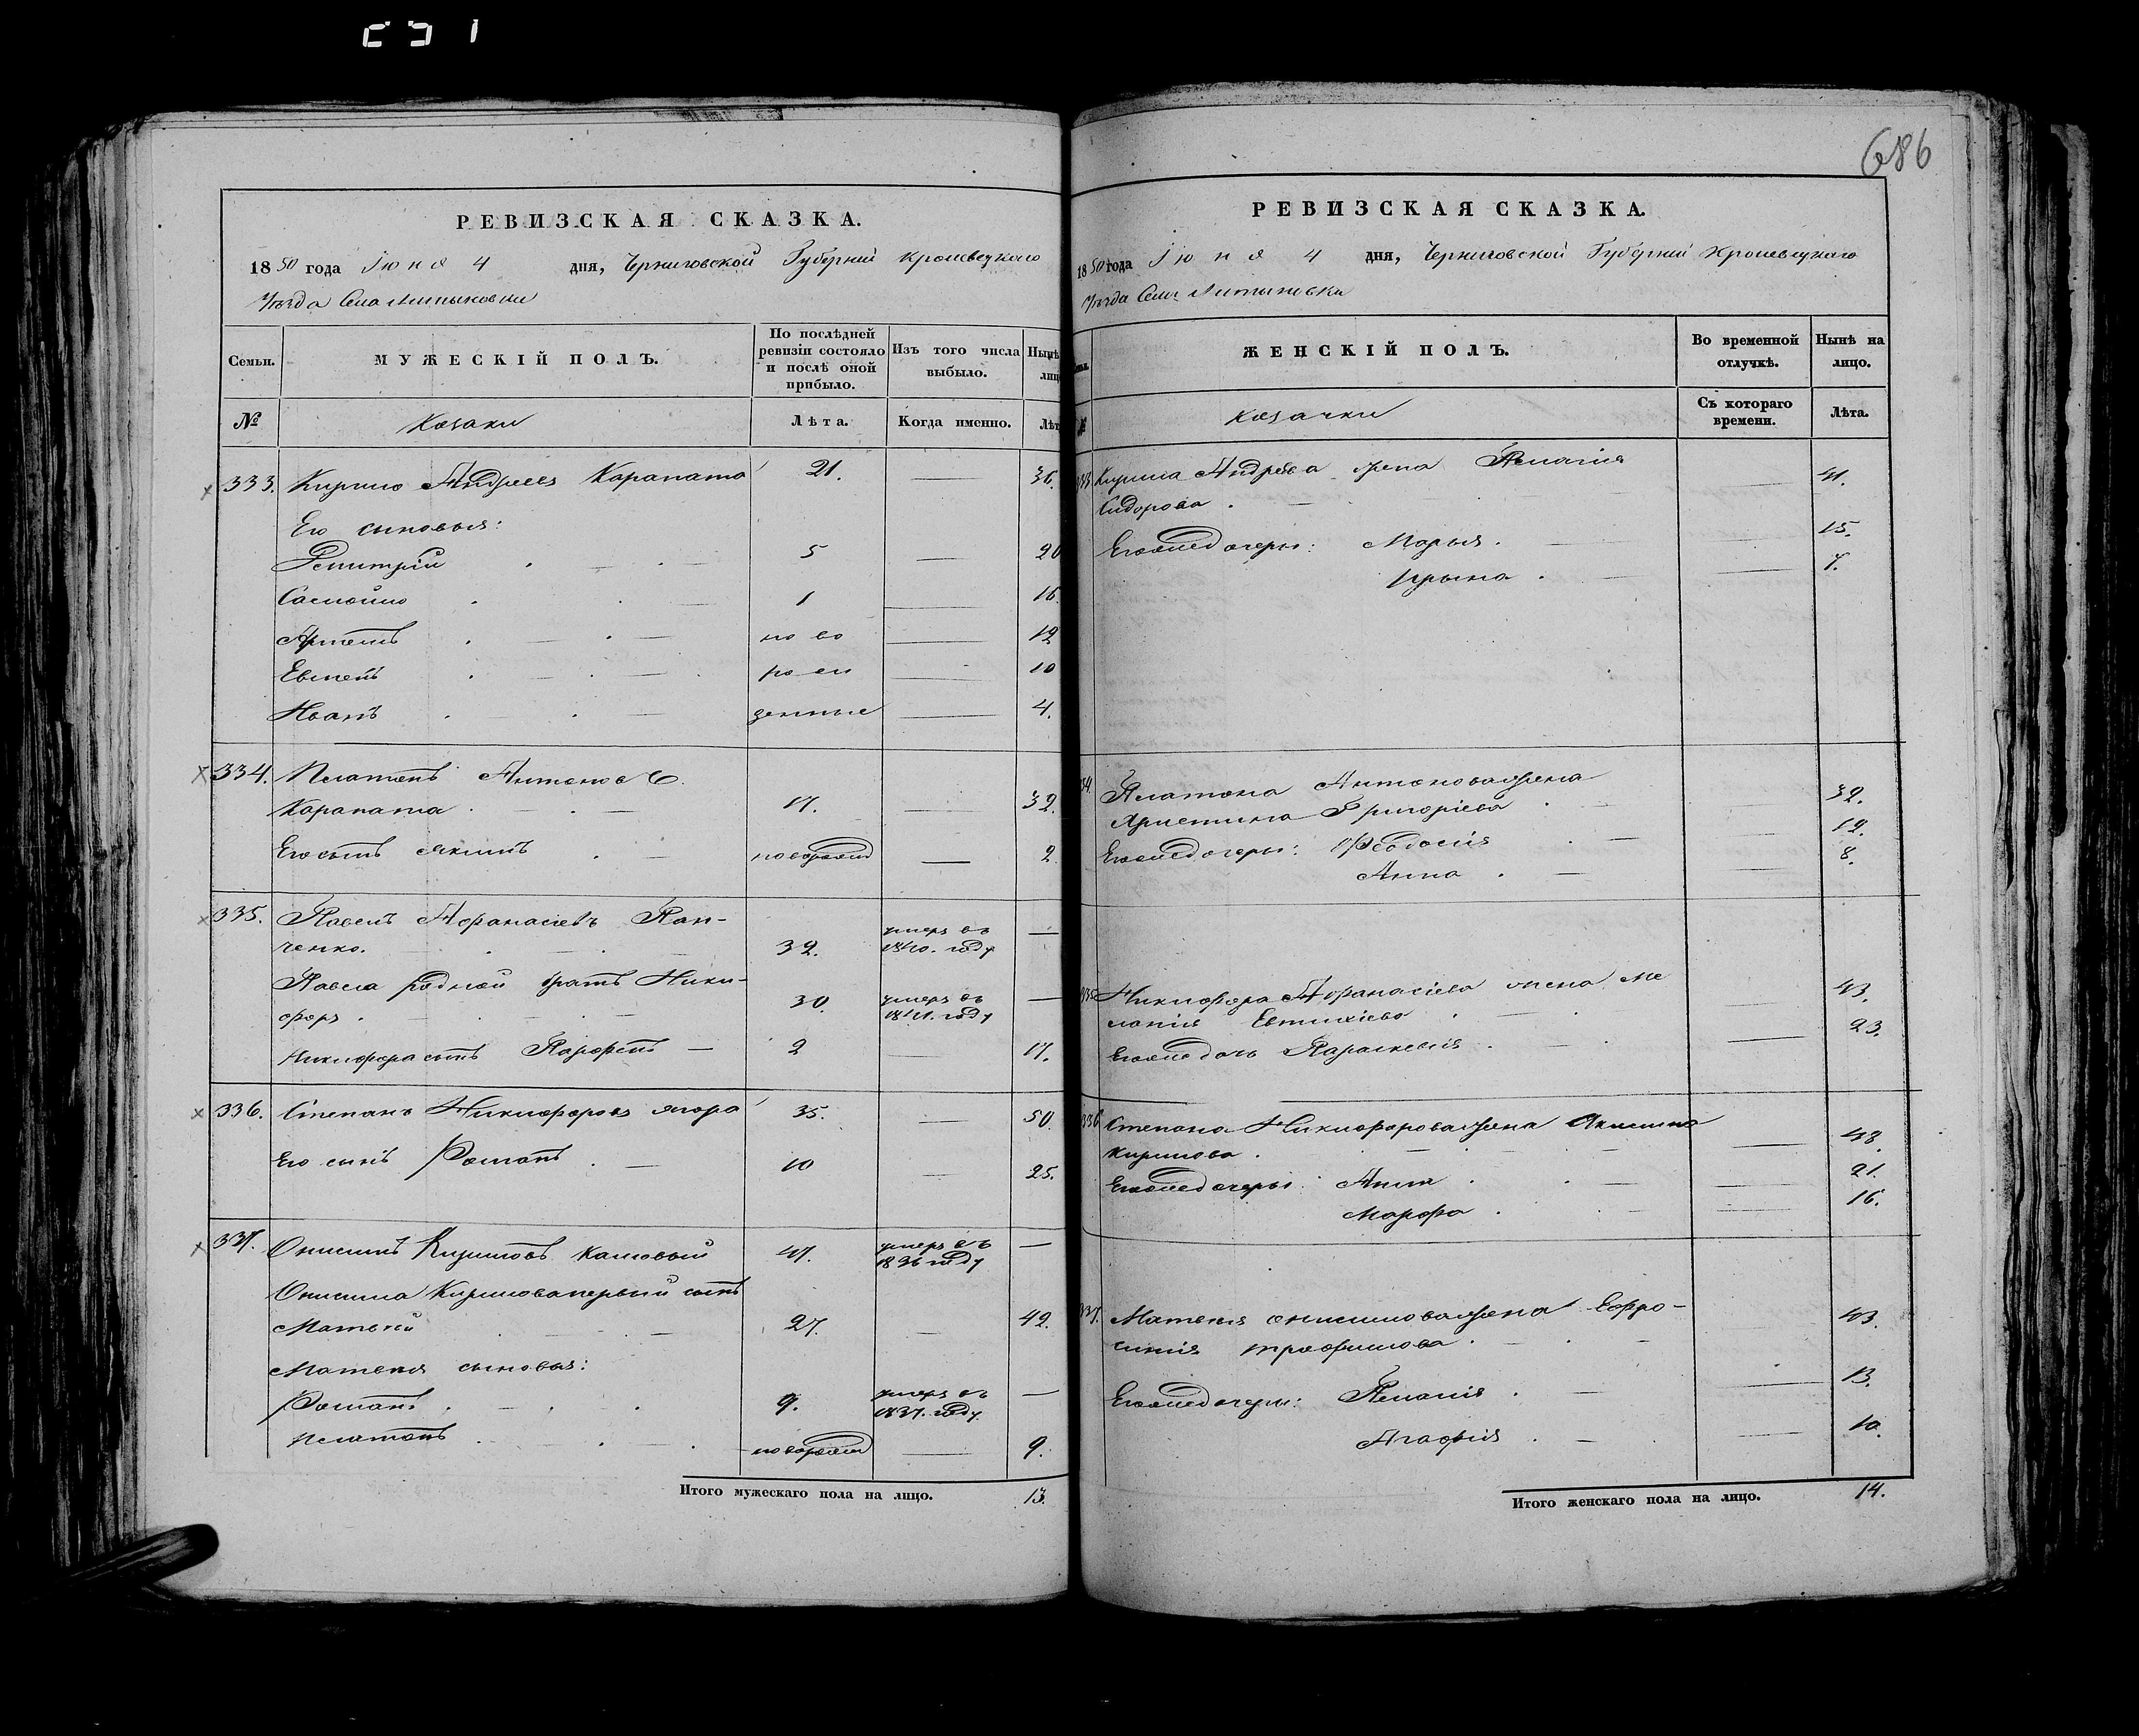 686
РЕВИЗСКАЯ СКАЗКА.
1850 года Іюня 4 дня, Черниговской Губерніи Кролевецкаго
уѣзда Села
Семьи.
МУЖЕСКІЙ ПОЛЪ.
По послѣдней ревизіи состояло и послѣ оной прибыло.
Изъ того числа выбыло.
Нынѣ
лиц
№
Козаки
Лѣта.
Когда именно.
Лѣт
333. Кирило Андреевъ Карапата 21. — 36.
Его сыновья:
Дмитрій 5 — 20
Самойло 1 — 16.
Артемъ ново — 12
Евсей рож — 10
Иванъ денные — 4.
334. Платонъ Антоновъ
Карапата 17. — 32.
Его сынъ Якимъ новорожд — 2
335. Павелъ Афанасіевъ Пан-
ченко. 32. умеръ въ 1840. году —
Павла родной братъ Ники-
форъ 30. умеръ въ 1841. году —
Никифора сынъ Парфенъ — 2 — 17.
336. Степанъ Никифоровъ 35. — 50.
Его сынъ Романъ 10 — 25.
337. Онисимъ Кириловъ 47. умеръ въ 1836 году —
Онисима Кирилова первый сынъ
Матвѣй 27. — 42.
Матвѣя сыновья:
Романъ 9. умеръ въ 1837. году —
Платонъ новорожд — 9.
Итого мужескаго пола на лицо. 13.
РЕВИЗСКАЯ СКАЗКА.
1850 года Іюня 4 дня, Черниговской Губерніи Кролевецкаго
уѣзда Села
ЖЕНСКІЙ ПОЛЪ.
Во временной отлучкѣ.
Нынѣ на лицо.
№
Козачки
Съ котораго времени.
Лѣта.
Кирила Андреева жена Пелагія
Сидорова. — 41.
Его дочери: Марья. — 15.
Ирына. — 7.
34. Платона Антонова жена
Христина Григоріева — 32.
Его дочери: Феодосія — 12.
Анна — 8.
335 Никифора Афанасіева жена Ме
ланія Евтихіева — 43.
Его дочь Параскевія — 23.
336 Степана Никифорова жена Акилина
Кирилова. — 48.
Его дочери: Анна — 21.
Марфа — 16.
337. Матвѣя Онисимова жена Ефро-
синія Трофимова 43.
Его дочери: Пелагія — 13.
Агафія — 10.
Итого женскаго пола на лицо. 14.